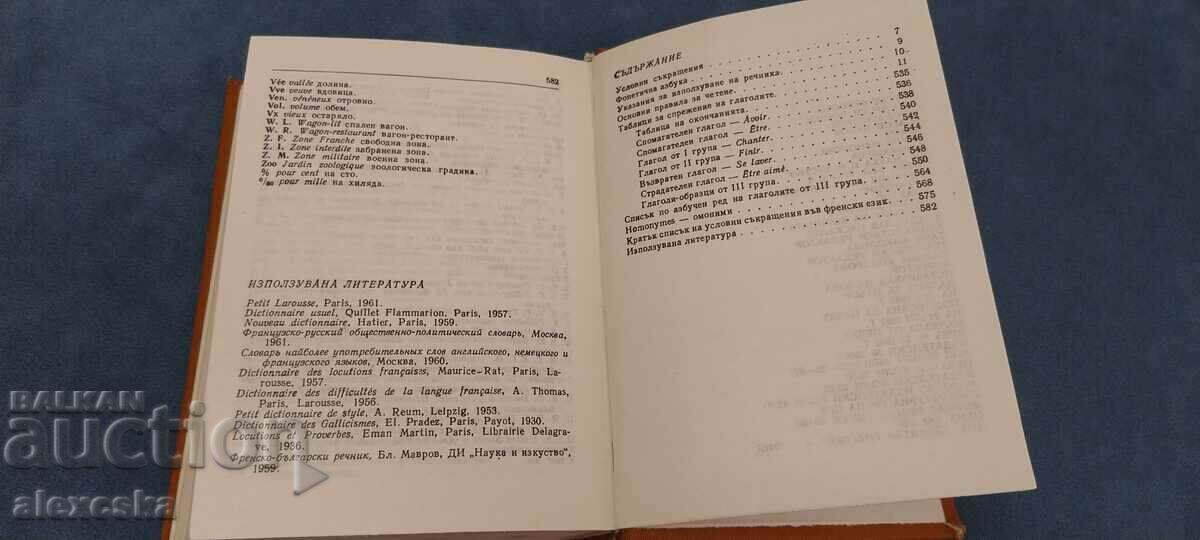 582
Vée vallée долина.
Vve veuve вдовица.
Ven. vénéneux отровно.
Vol. volume обем.
Vx vieux остаряло.
W. L. Wagon-lit спален вагон.
W. R. Wagon-restaurant вагон-ресторант.
Z. F. Zone Franche свободна зона.
Z. I. Zone interdite забранена зона.
Z. M. Zone militaire военна зона.
Zoo Jardin zoologique зоологическа градина.
% pour cent на сто.
‰ pour mille на хиляда.
ИЗПОЛЗУВАНА ЛИТЕРАТУРА
Petit Larousse, Paris, 1961.
Dictionnaire usuel, Quillet Flammarion, Paris, 1957.
Nouveau dictionnaire, Hatier, Paris, 1959.
Французско-русский общественно-политический словарь, Москва,
1961.
Словарь наиболее употребительных слов английского, немецкого и
французского языков, Москва, 1960.
Dictionnaire des locutions françaises, Maurice-Rat, Paris, La-
rousse, 1957.
Dictionnaire des difficultés de la langue française, A. Thomas,
Paris, Larousse, 1956.
Petit dictionnaire de style, A. Reum, Leipzig, 1953.
Dictionnaire des Gallicismes, El. Pradez, Paris, Payot, 1930.
Locutions et Proverbes, Eman Martin, Paris, Librairie Delagra-
ve, 1936.
Френско-български речник, Бл. Мавров, ДИ „Наука и изкуство”,
1959.
СЪДЪРЖАНИЕ
Условни съкращения 7
Фонетична азбука 9
Указания за използуване на речника. 10
Основни правила за четене. 11
Таблици за спрежение на глаголите. 535
Таблица на окончанията. 536
Спомагателен глагол — Avoir. 538
Спомагателен глагол — Être. 540
Глагол от I група — Chanter. 542
Глагол от II група — Finir. 544
Възвратен глагол — Se laver. 546
Страдателен глагол — Être aimé. 548
Глаголи-образци от III група. 550
Списък по азбучен ред на глаголите от III група. 564
Homonymes — омоними 568
Кратък списък на условни съкращения във френски език. 575
Използувана литература 582
BALKAN
auction
alexcska